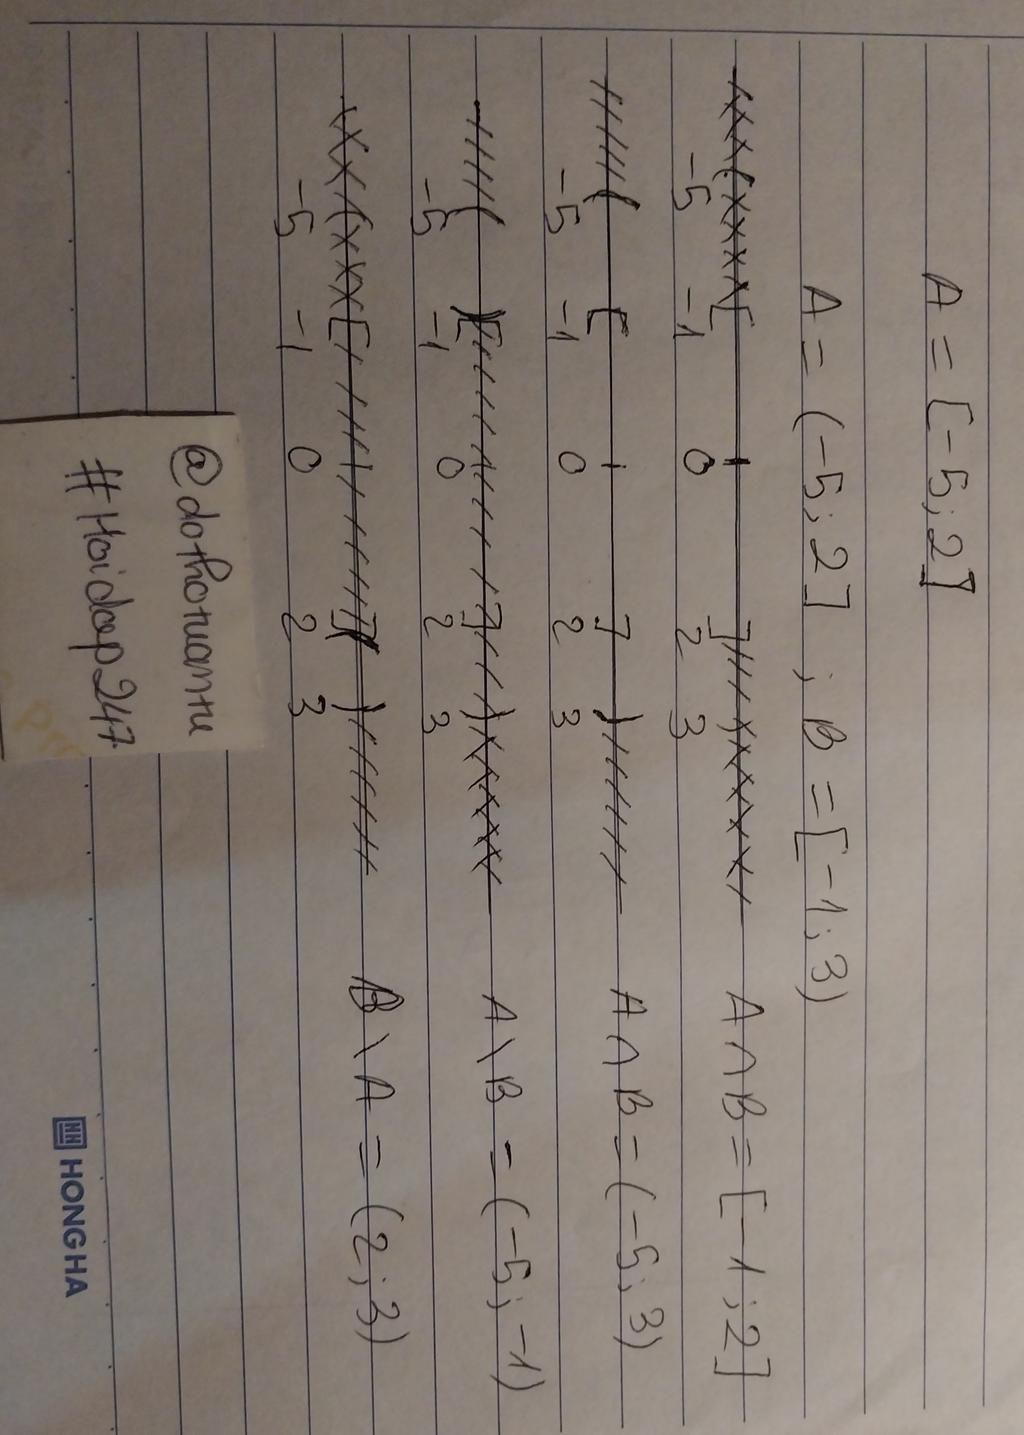 A = [-5; 2]
A = (-5; 2] ; B = [-1; 3)
A ∩ B = [-1; 2]
-5 -1 0 2 3
A ∩ B = (-5; 3)
-5 -1 0 2 3
A \ B = (-5; -1)
-5 -1 0 2 3
B \ A = (2; 3)
-5 -1 0 2 3
@dothotuantu
#Hoidap247
HONG HA